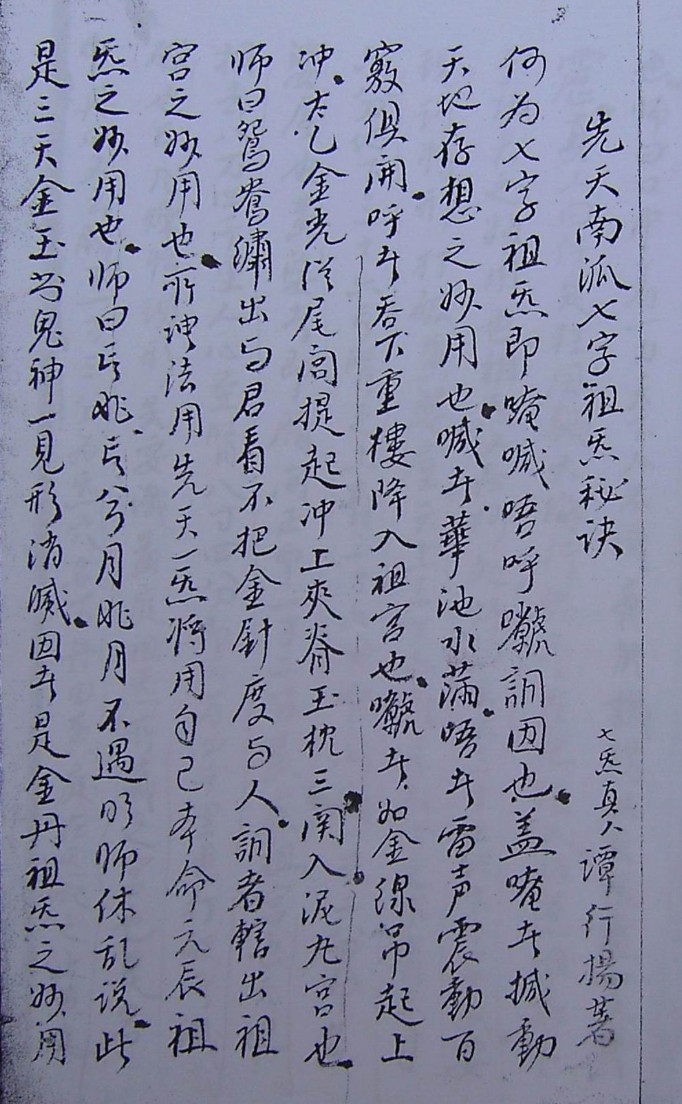 先天南派七字祖炁秘诀
七炁真人谭行揚著
何为七字祖炁即唵喊唔呼嚽詷囙也盖唵者撼動
天地存想之妙用也喊者華池水满唔者雷声震動百
竅俱開呼者吞下重樓降入祖宫也者如金線吊起上
冲太乙金光從尾闾提起冲上夾脊玉枕三関入泥丸宫也
师曰鴛鴦繡出与君看不把金針度与人詷者轄出祖
宫之妙用也所謂法用先天一炁將用自己本命元辰祖
炁之妙用也师曰月月不遇明师休乱说此
是三天金玉書鬼神一見形消滅囙者是金丹祖炁之妙用